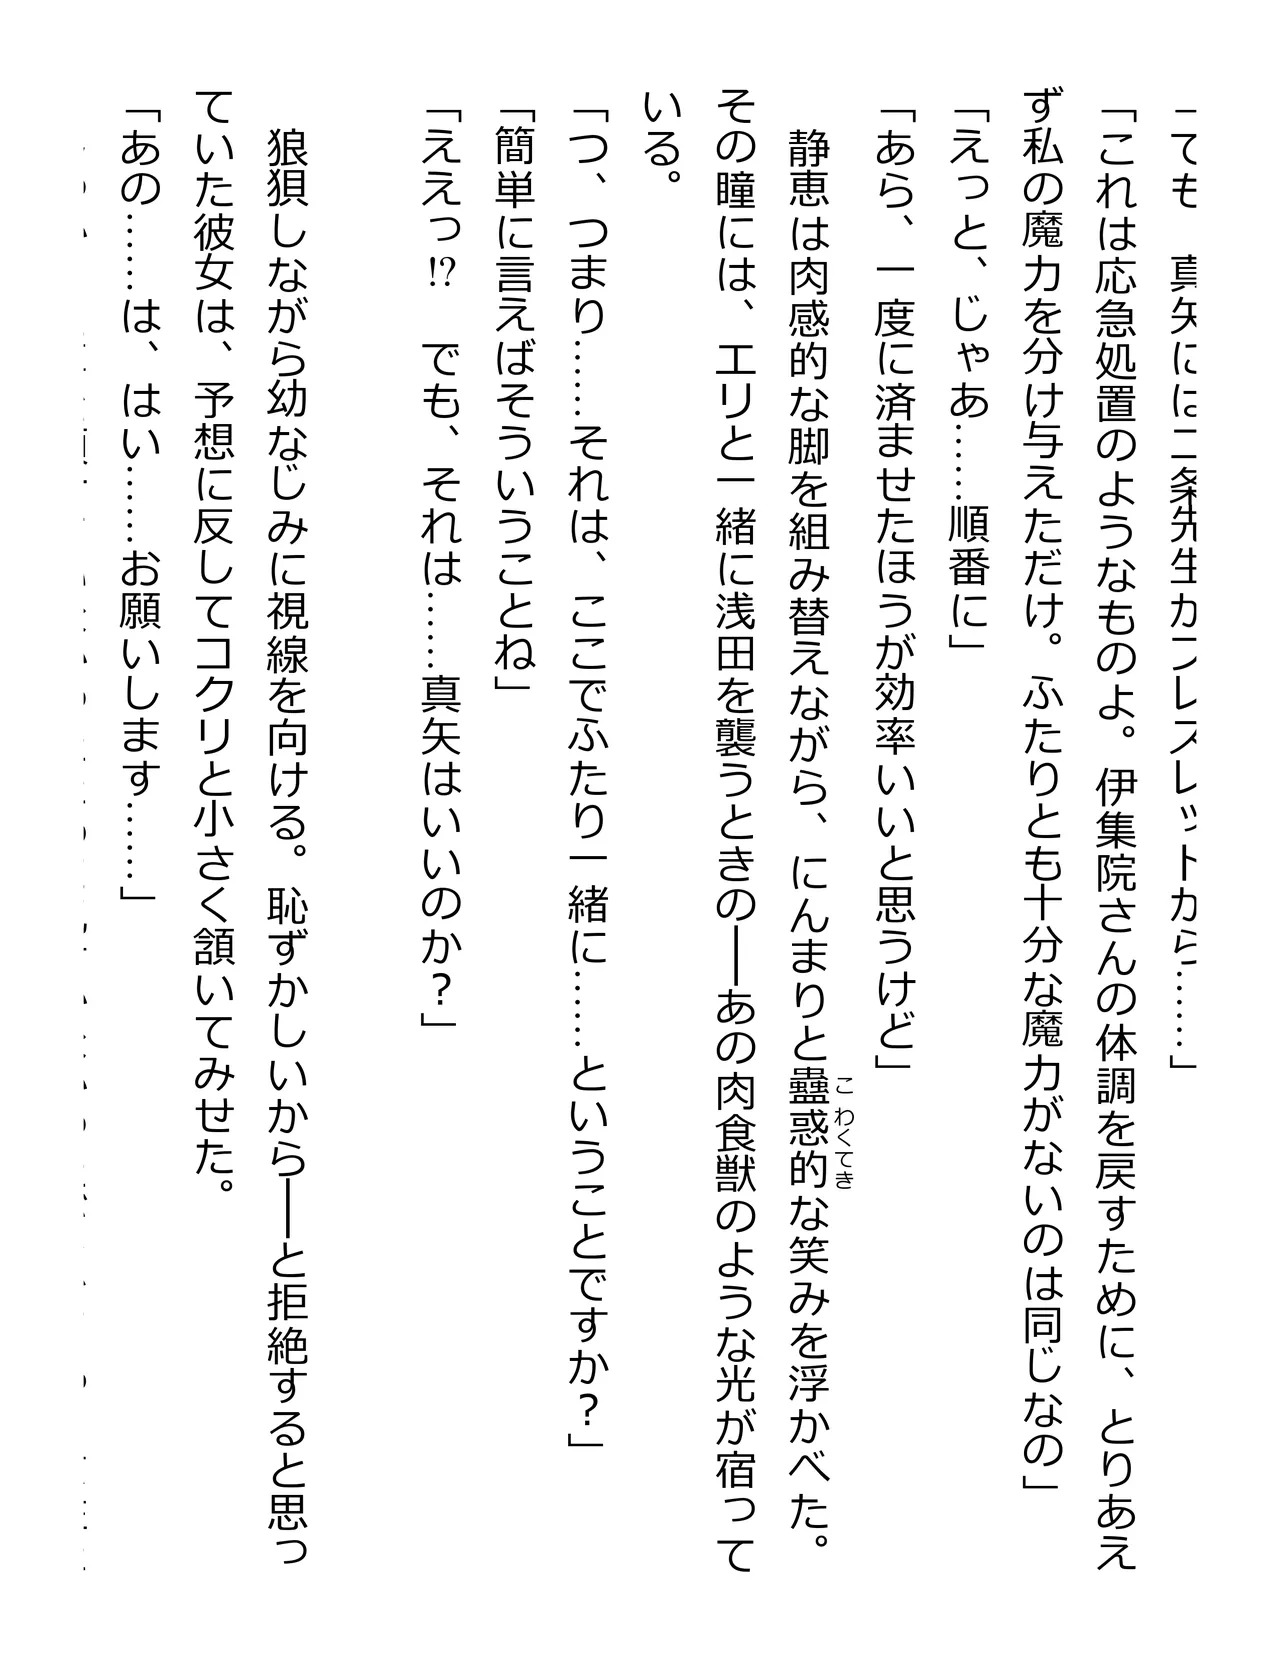 「でも　真矢には二条先生がブレスレットから……」
「これは応急処置のようなものよ。伊集院さんの体調を戻すために、とりあえ
ず私の魔力を分け与えただけ。ふたりとも十分な魔力がないのは同じなの」
「えっと、じゃあ……順番に」
「あら、一度に済ませたほうが効率いいと思うけど」
　静恵は肉感的な脚を組み替えながら、にんまりと蠱惑的な笑みを浮かべた。
こ わくてき
その瞳には、エリと一緒に浅田を襲うときの――あの肉食獣のような光が宿って
いる。
「つ、つまり……それは、ここでふたり一緒に……ということですか？」
「簡単に言えばそういうことね」
「ええっ!?　でも、それは……真矢はいいのか？」
　狼狽しながら幼なじみに視線を向ける。恥ずかしいから――と拒絶すると思っ
ていた彼女は、予想に反してコクリと小さく頷いてみせた。
「あの……は、はい……お願いします……」